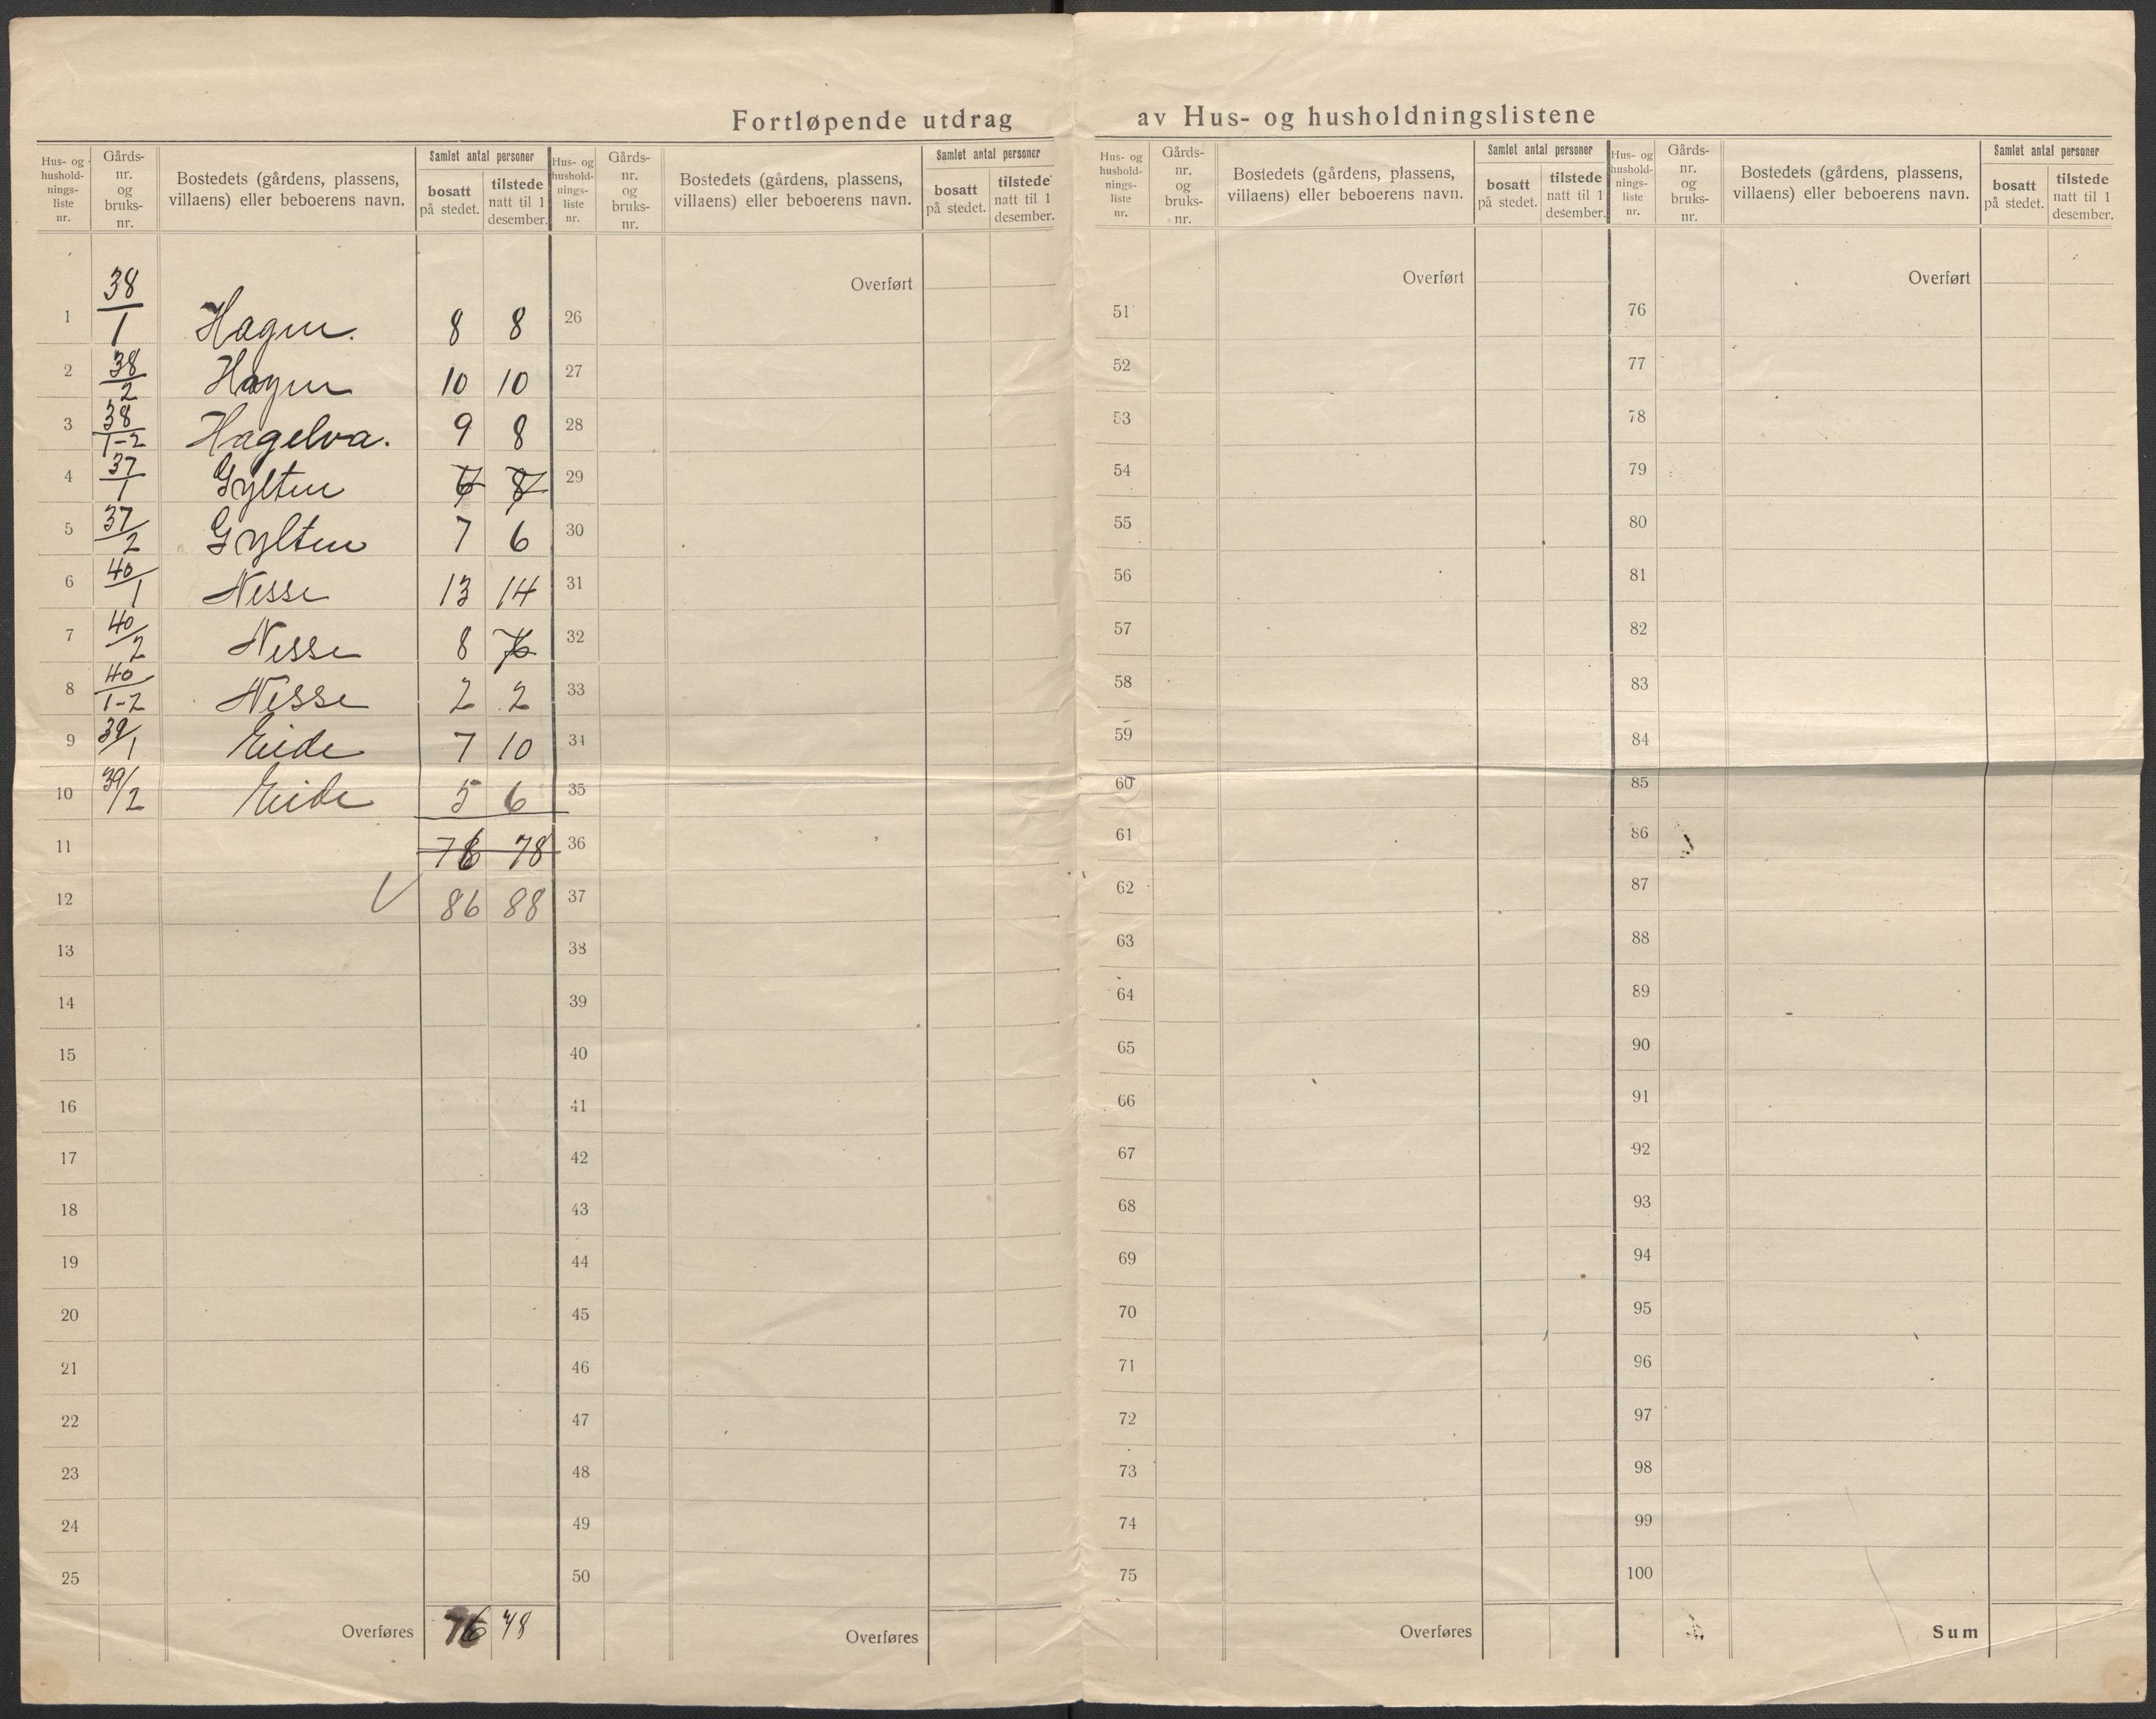 Fortløpende utdrag av Hus- og husholdningslistene
Hus- og hushold- nings- liste nr.
Gårds- nr. og bruks- nr.
Bostedets (gårdens, plassens, villaens) eller beboerens navn.
Samlet antal personer
bosatt på stedet.
tilstede natt til 1 desember.
Hus- og hushold- nings- liste nr.
Gårds- nr. og bruks- nr.
Bostedets (gårdens, plassens, villaens) eller beboerens navn.
Samlet antal personer
bosatt på stedet.
tilstede natt til 1 desember.
Hus- og hushold- nings- liste nr.
Gårds- nr. og bruks- nr.
Bostedets (gårdens, plassens, villaens) eller beboerens navn.
Samlet antal personer
bosatt på stedet.
tilstede natt til 1 desember.
Hus- og hushold- nings- liste nr.
Gårds- nr. og bruks- nr.
Bostedets (gårdens, plassens, villaens) eller beboerens navn.
Samlet antal personer
bosatt på stedet.
tilstede natt til 1 desember.
1 38/1 Hagen. 8 8
2 38/2 Hagen 10 10
3 38/1-2 Hagelva. 9 8
4 37/1 Gylten
5 37/2 Gylten 7 6
6 40/1 Nesse 13 14
7 40/2 Nesse 8
8 40/1-2 Nesse 2 2
9 39/1 Eide 7 10
10 39/2 Eide 5 6
11 76 78
12 86 88
13
14
15
16
17
18
19
20
21
22
23
24
25
Overføres 76 78
Overført
26
27
28
29
30
31
32
33
34
35
36
37
38
39
40
41
42
43
44
45
46
47
48
49
50
Overføres
Overført
51
52
53
54
55
56
57
58
59
60
61
62
63
64
65
66
67
68
69
70
71
72
73
74
75
Overføres
Overført
76
77
78
79
80
81
82
83
84
85
86
87
88
89
90
91
92
93
94
95
96
97
98
99
100
Sum